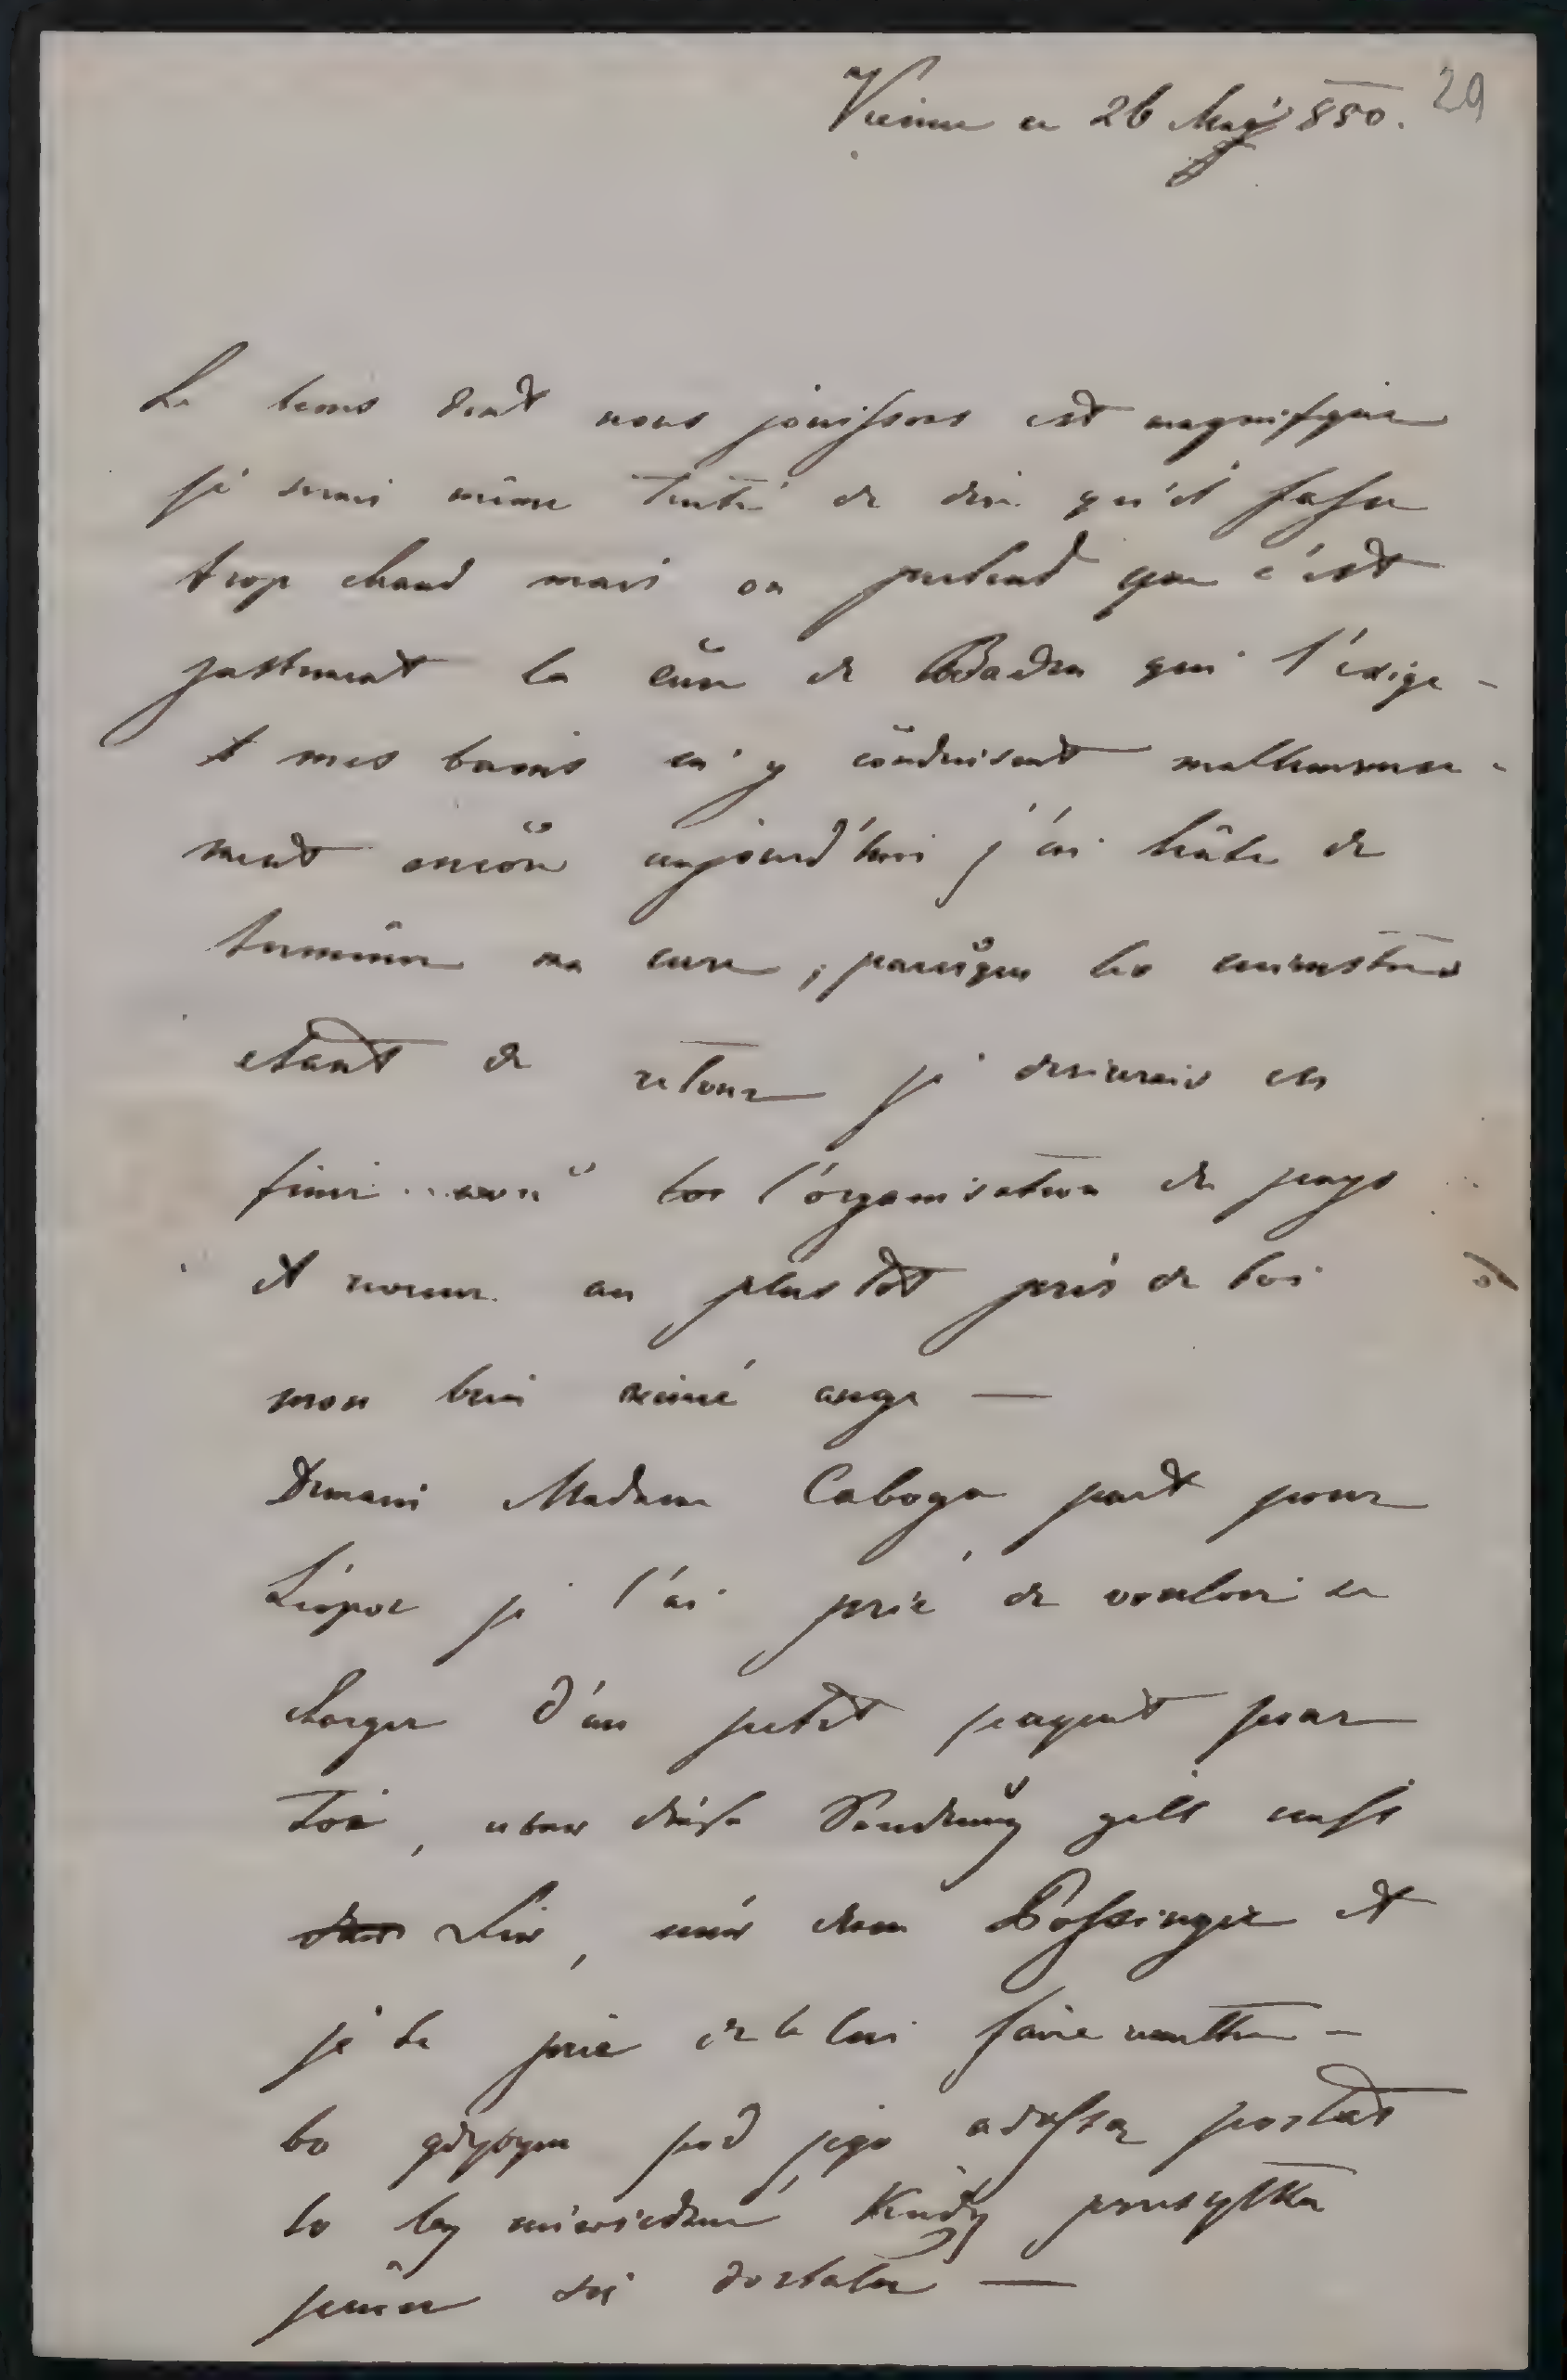 29
Vienne ce 26 Maj 850.
Le tems dont nous jouissons est magnifique
je serais même tenté de dire qu'il fasse
trop chaud mais on pretend que c'est
justement la cure de Baden qui l'exige -
et mes bains m'y conduisent malheureuse-
ment encore aujourd'hui j'ai hâte de
terminer ma cure, parceque les ministres
etant de retour je desirerais en
finir avec l'organisation du pays
et revenir au plus tôt près de toi
mon bien aimé ange —
Demain Madame Caboga part pour
Léopol je l'ai prié de vouloir se
charger d'un petit paquet pour
toi, aber diese Sendung gilt nicht
Dir, nur dem Possinger et
je te prie de le lui faire remettre -
bo gdybym pod jego adressą posłał
to by niewiedzieć kiedy przesyłka
się dostała —